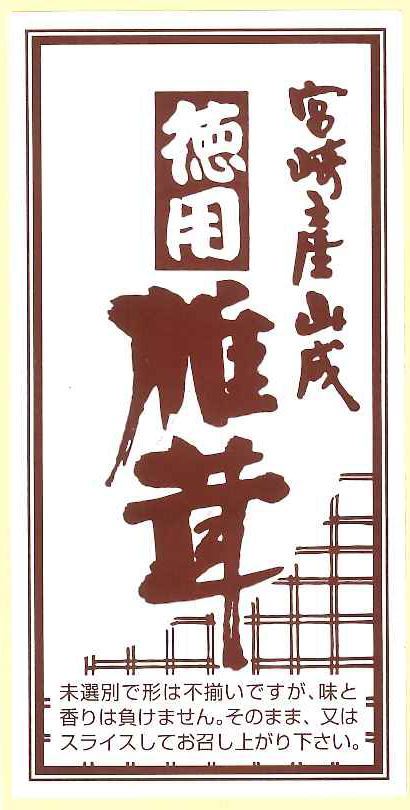 宮崎産山成
徳用
椎茸
未選別で形は不揃いですが、味と
香りは負けません。そのまま、又は
スライスしてお召し上がり下さい。